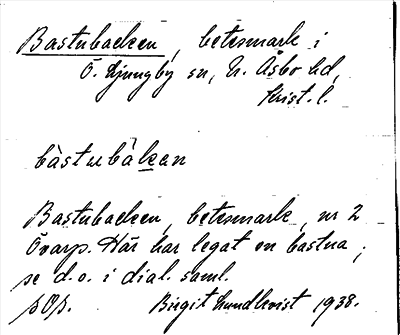 Bastubacken, betesmark i
Ö. Ljungby sn, N. Åsbo hd,
Krist. l.
bàstubàkan
Bastubacken, betesmark, nr 2
Övarp. Här har legat en bastua,
se d.o. i dial. saml.
Birgit Lundkvist 1938.